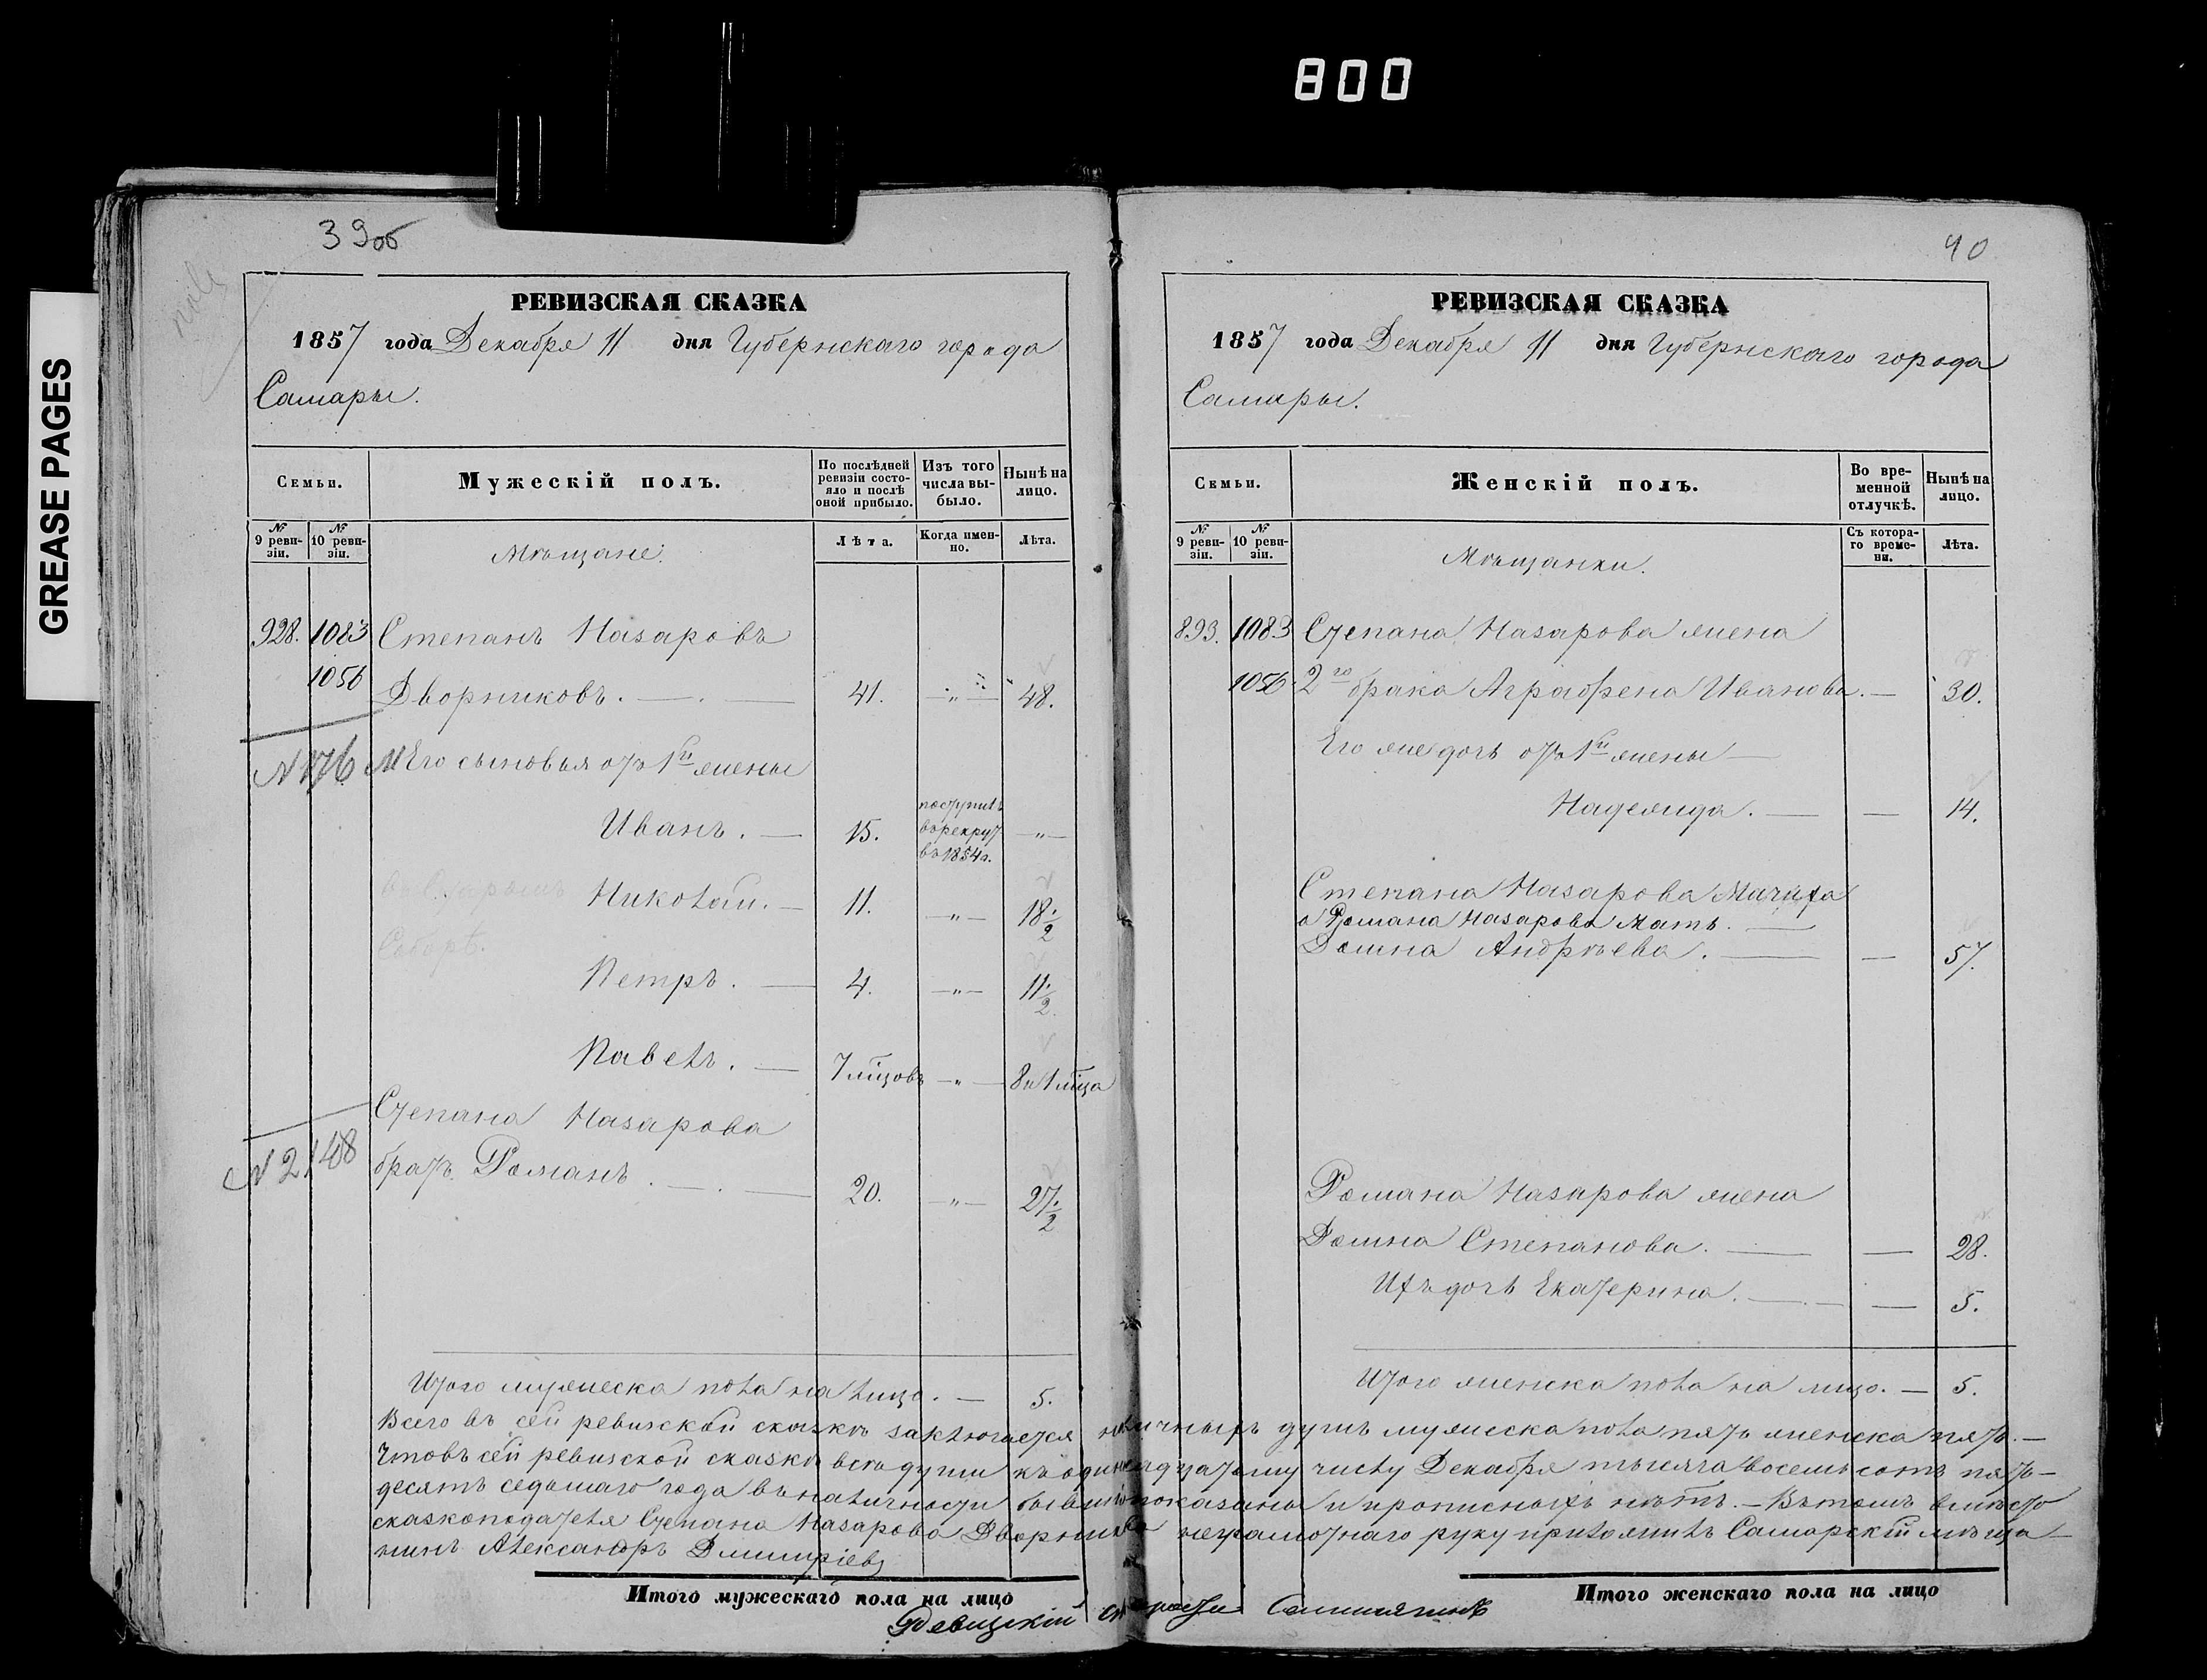 800
GREASE PAGES
39об
РЕВИЗСКАЯ СКАЗКА
1857 года Декабря 11 дня Губернскаго города
Самары.
Семьи.
Мужескій полъ.
По послѣдней ревизіи состояло и послѣ оной прибыло.
Изъ того числа выбыло.
Нынѣ на лицо.
№ 9 ревизіи.
№ 10 ревизіи.
Мѣщане.
Лѣта.
Когда именно.
Лѣта.
928. 1083 Степанъ Назаровъ
1056 Дворниковъ. 41. " 48.
N 176 Его сыновья отъ 1й жены
Иванъ. 15. поступилъ въ рекруты въ 1854 г. "
Николай. 11. " 18 1/2
Соборѣ.
Петръ. 4. " 11 1/2
Павелъ. 7 мѣцовъ " 8 и 1 мѣца
Степана Назарова
N 2148 братъ Романъ 20. " 27 1/2
Итого мужеска пола на лицо. 5.
40
РЕВИЗСКАЯ СКАЗКА
1857 года Декабря 11 дня Губернскаго города
Самары.
Семьи.
Женскій полъ.
Во временной отлучкѣ.
Нынѣ на лицо.
№ 9 ревизіи.
№ 10 ревизіи.
Мѣщанки.
Съ котораго времени.
Лѣта.
893. 1083 Степана Назарова жена
1056 2го брака Аграфена Иванова. 30.
Его же дочь отъ 1й жены
Надежда. 14.
Степана Назарова Мачиха
а Романа Назарова Мать.
Домна Андрѣева. 57.
Романа Назарова жена
Домна Степанова. 28.
Ихъ дочь Екатерина. 5.
Итого женска пола на лицо. 5.
Всего въ сей ревизской сказкѣ заключается наличныхъ душъ мужеска пола пять женска пять.
Что въ сей ревизской сказкѣ всѣ души къ одинадцатому числу Декабря тысяча восемьсотъ пять-
десятъ седьмаго года въ наличности бывшіе показаны и прописныхъ нѣтъ. Въ томъ вмѣсто
сказкоподателя Степана Назарова Дворникова неграмотнаго руку приложилъ Самарскій мѣща-
нинъ Александръ Дмитріевъ
Итого мужескаго пола на лицо
Итого женскаго пола на лицо
Ревизскій староста